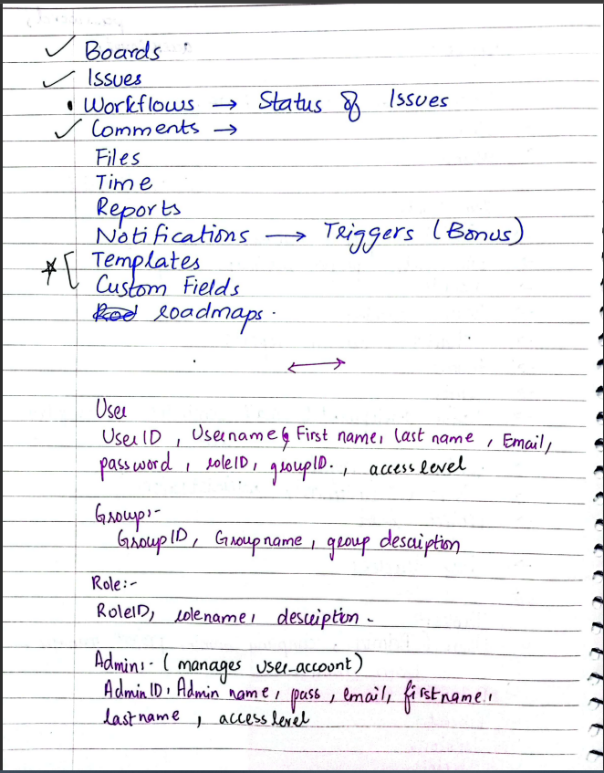 ✓ Boards
✓ Issues
• Workflows → Status of Issues
✓ Comments →
Files
Time
Reports
Notifications → Triggers (Bonus)
* [ Templates
Custom Fields
roadmaps.
↔
User
UserID, Username, First name, last name, Email,
password, roleID, groupID., access level
Group:-
GroupID, Groupname, group description
Role:-
RoleID, rolename, description.
Admin:- (manages user_account)
AdminID, Admin name, pass, email, firstname,
lastname, access level